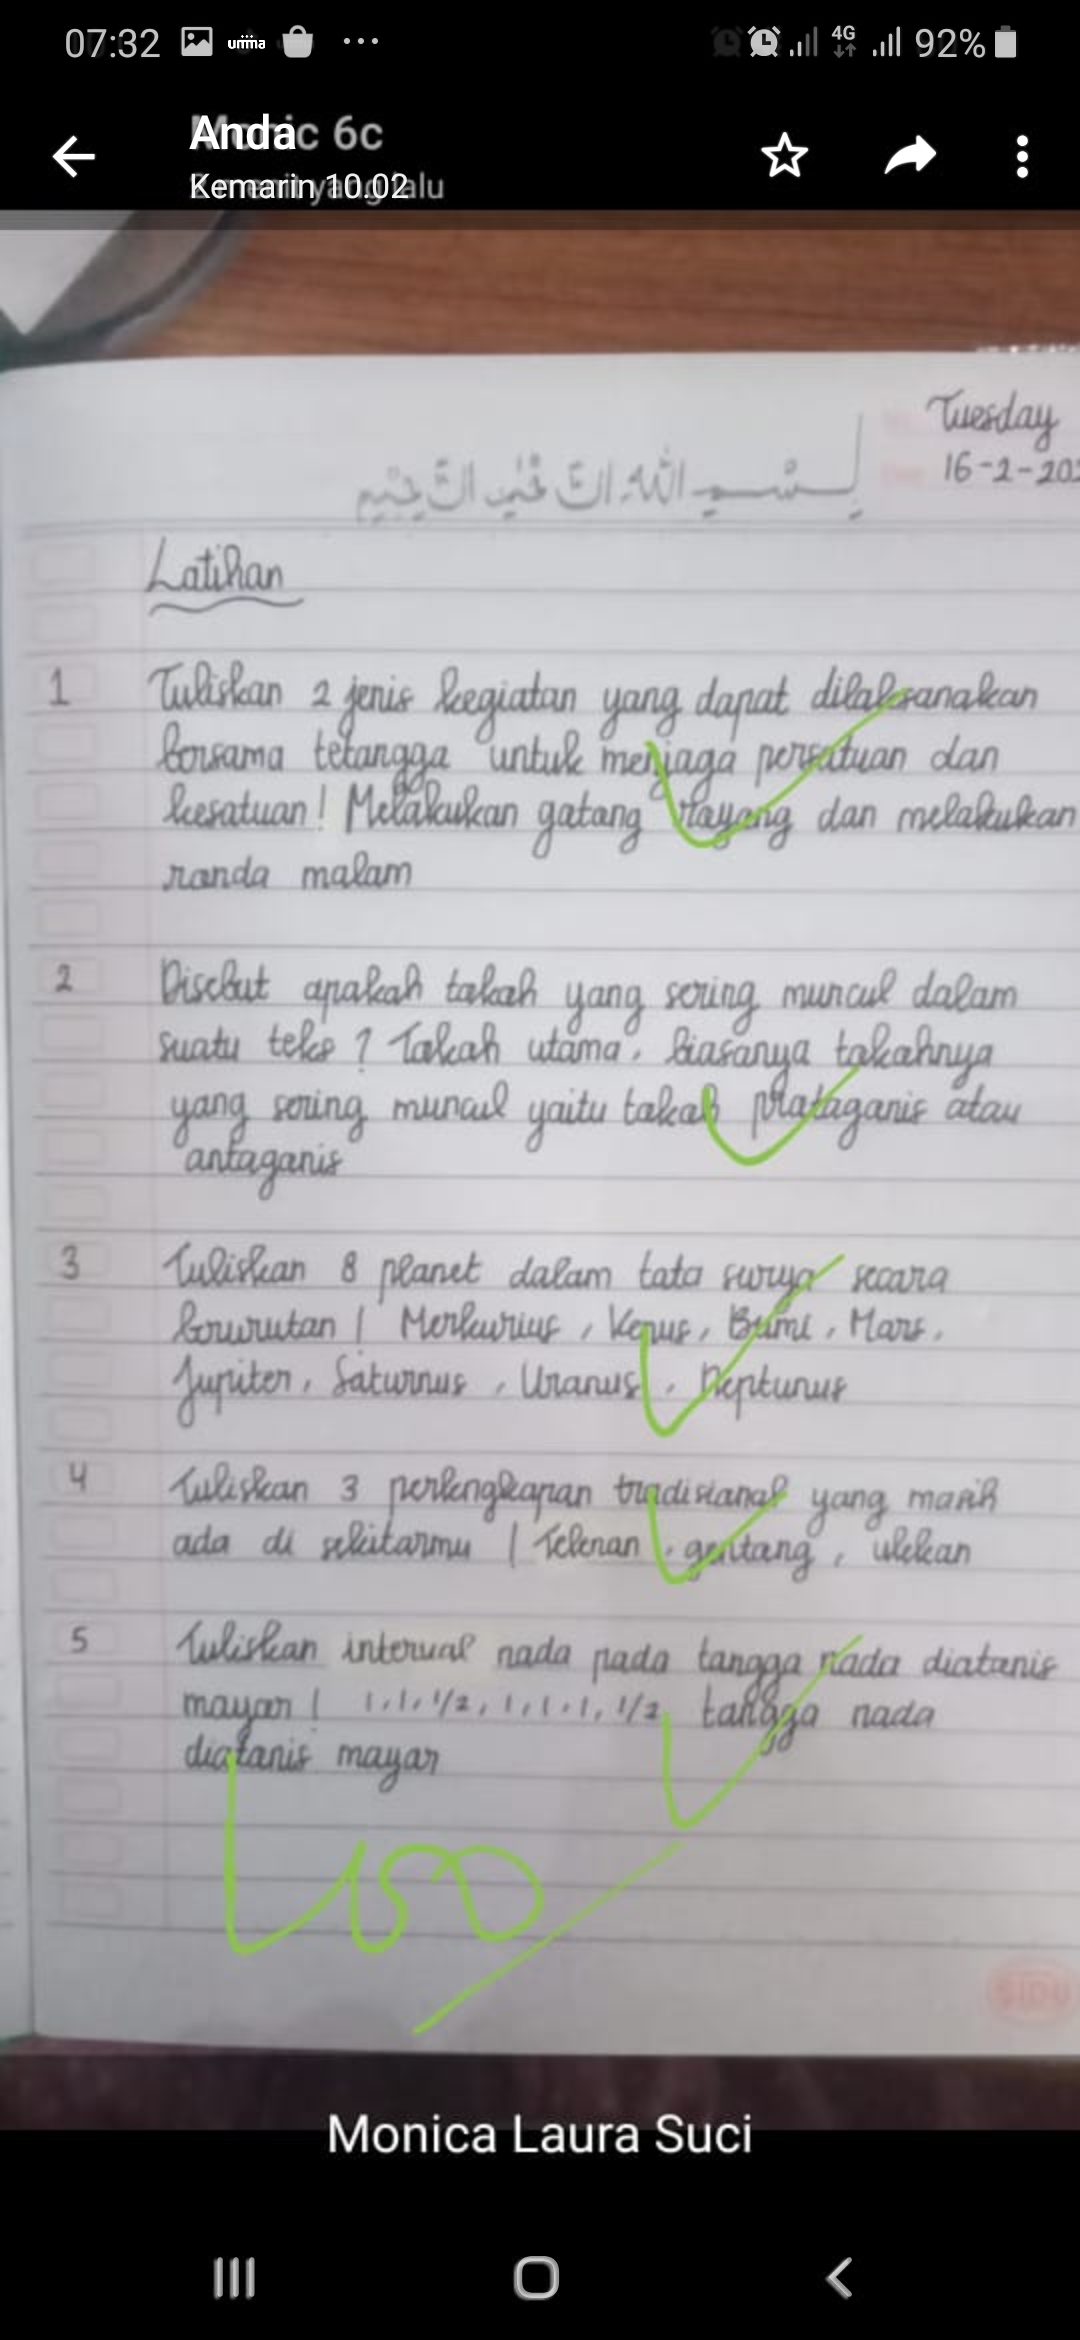 07:32 umma 4G 92%
Anda
Kemarin 10.02
Tuesday
16-2-202
بسم الله الرحمن الرحيم
Latihan
1 Tuliskan 2 jenis kegiatan yang dapat dilaksanakan
bersama tetangga untuk menjaga persatuan dan
kesatuan! Melakukan gotong royong dan melakukan
ronda malam
2 Disebut apakah tokoh yang sering muncul dalam
suatu teks? Tokoh utama, biasanya tokohnya
yang sering muncul yaitu tokoh protagonis atau
antagonis
3 Tuliskan 8 planet dalam tata surya secara
berurutan! Merkurius, Venus, Bumi, Mars,
Jupiter, Saturnus, Uranus, Neptunus
4 Tuliskan 3 perlengkapan tradisional yang masih
ada di sekitarmu! Telenan, gentong, ulekan
5 Tuliskan interval nada pada tangga nada diatonis
mayor! 1, 1, 1/2, 1, 1, 1, 1/2 tangga nada
diatonis mayor
100
SIDU
Monica Laura Suci